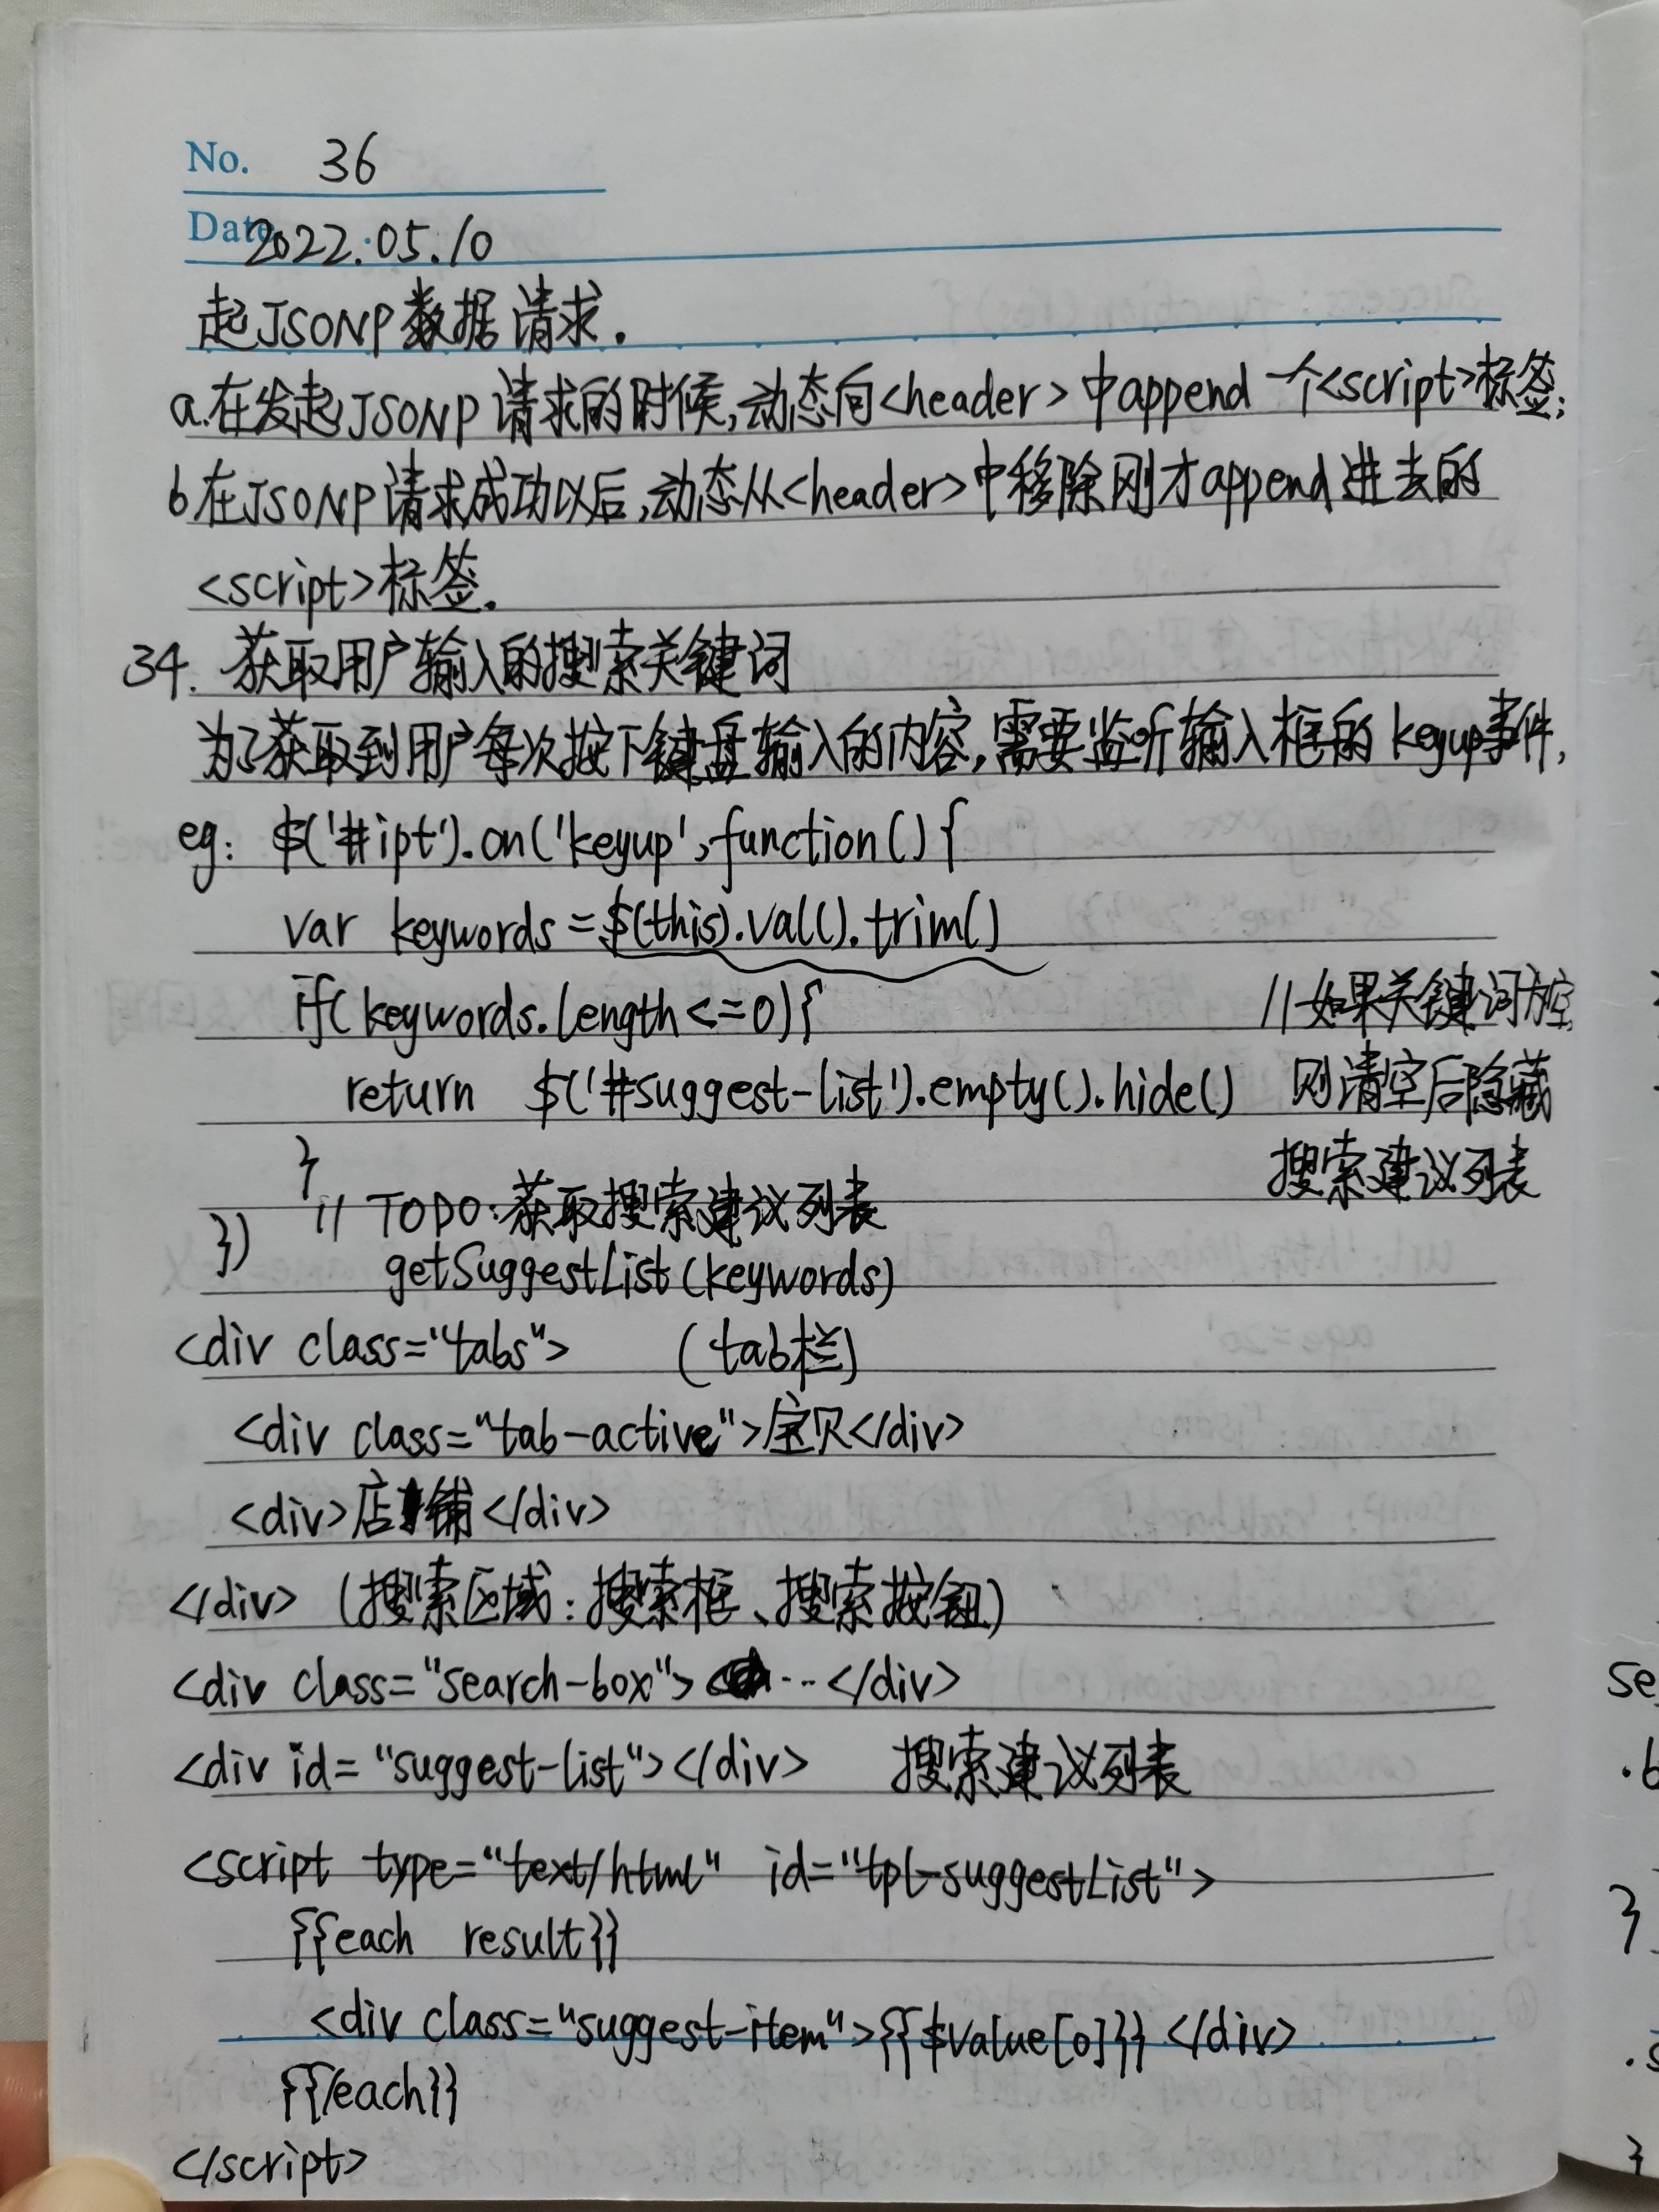 No. 36
Date 2022.05.10
起JSONP数据请求.
a.在发起JSONP请求的时候,动态向<header>中append一个<script>标签;
b.在JSONP请求成功以后,动态从<header>中移除刚才append进去的
<script>标签.
34. 获取用户输入的搜索关键词
为了获取到用户每次按下键盘输入的内容,需要监听输入框的keyup事件,
eg: $('#ipt').on('keyup',function(){
var keywords=$(this).val().trim()
if(keywords.length<=0){ //如果关键词为空
return $('#suggest-list').empty().hide() 则清空后隐藏
} 搜索建议列表
// TODO:获取搜索建议列表
})
getSuggestList(keywords)
<div class="tabs"> (tab栏)
<div class="tab-active">宝贝</div>
<div>店铺</div>
</div> (搜索区域:搜索框、搜索按钮)
<div class="search-box"> ... </div>
<div id="suggest-list"></div> 搜索建议列表
<script type="text/html" id="tpl-suggestList">
{{each result}}
<div class="suggest-item">{{$value[0]}} </div>
{{/each}}
</script>
se
.b
}
}